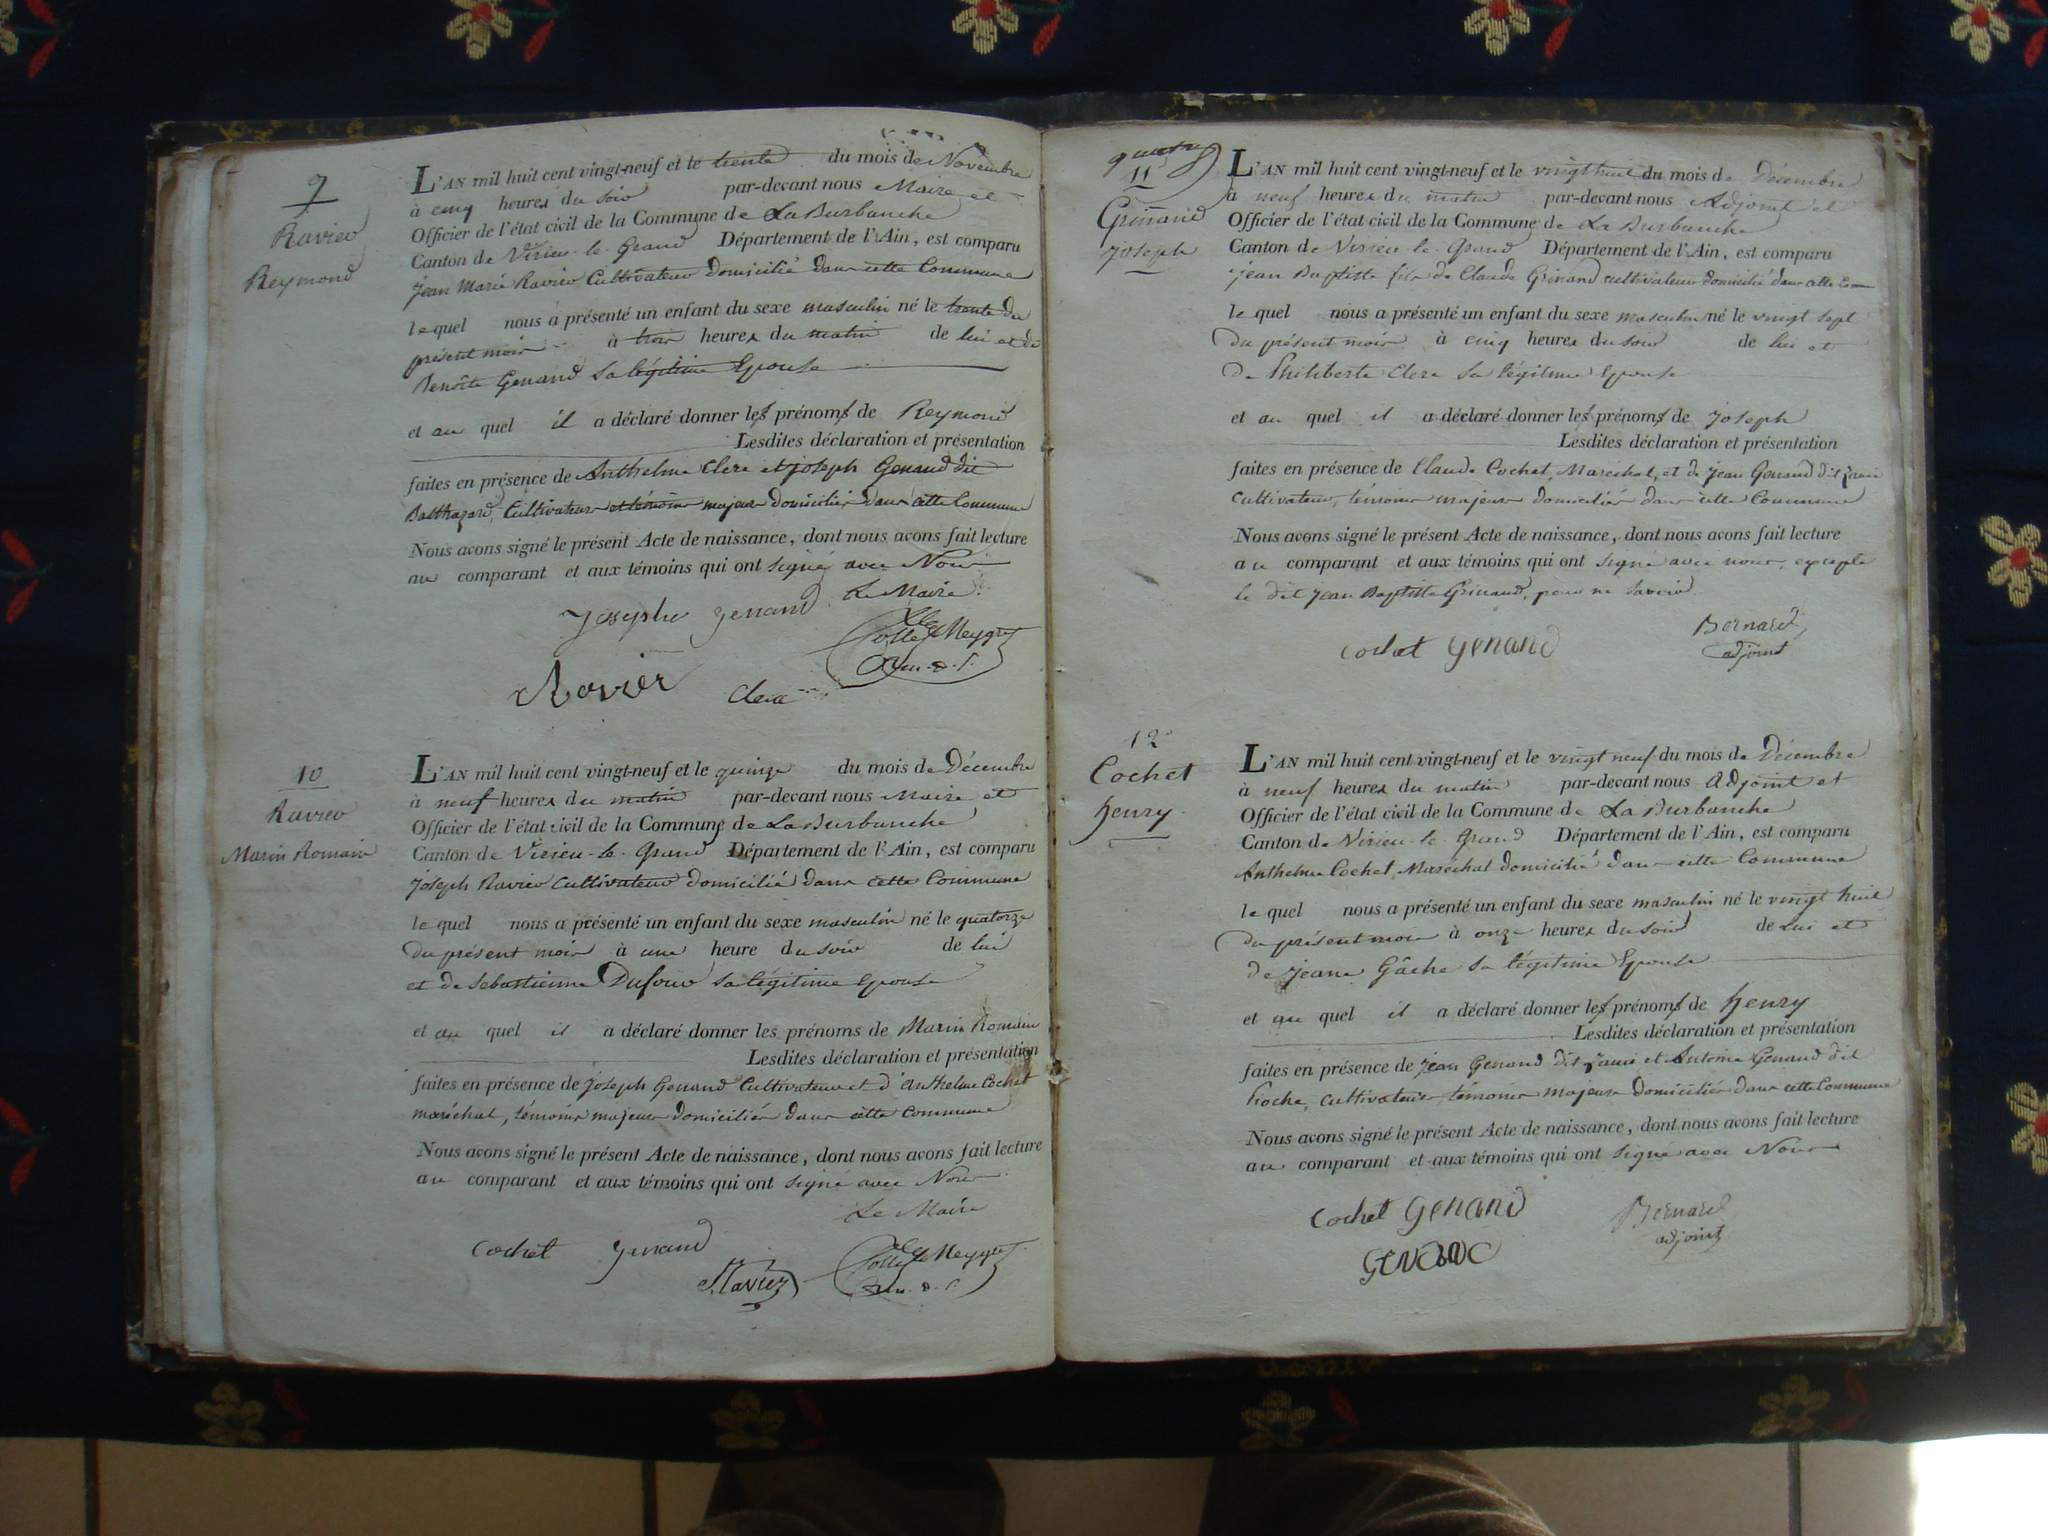 9
Ravier
Reymond
L'AN mil huit cent vingt-neuf et le trente du mois de Novembre
à cinq heures du soir par-devant nous Maire et
Officier de l'état civil de la Commune de La Burbanche
Canton de Virieu-le-Grand Département de l'Ain, est comparu
Jean Marie Ravier Cultivateur domicilié dans cette Commune
lequel nous a présenté un enfant du sexe masculin né le trente du
présent mois à trois heures du matin de lui et de
Benoîte Genand sa légitime Epouse
et au quel il a déclaré donner les prénoms de Reymond
Lesdites déclaration et présentation
faites en présence de Anthelme Clerc et joseph Genand dit
Balthazard, Cultivateurs et témoins majeurs domiciliés dans cette Commune
Nous avons signé le présent Acte de naissance, dont nous avons fait lecture
au comparant et aux témoins qui ont signé avec Nous
Le Maire
Josephe genand
Ravier Clerc
10
Ravier
Marin Romain
L'AN mil huit cent vingt-neuf et le quinze du mois de Décembre
à neuf heures du matin par-devant nous Maire et
Officier de l'état civil de la Commune de La Burbanche
Canton de Virieu-le-Grand Département de l'Ain, est comparu
Joseph Ravier Cultivateur domicilié dans cette Commune
lequel nous a présenté un enfant du sexe masculin né le quatorze
du présent mois à une heure du soir de lui
et de Sebastienne Dufour sa légitime Epouse
et au quel il a déclaré donner les prénoms de Marin Romain
Lesdites déclaration et présentation
faites en présence de Joseph Genand Cultivateur et d'Anthelme Cochet
maréchal, témoins majeurs domiciliés dans cette Commune
Nous avons signé le présent Acte de naissance, dont nous avons fait lecture
au comparant et aux témoins qui ont signé avec Nous
Le Maire
Cochet genand
Ravier
11
Grinand
Joseph
L'AN mil huit cent vingt-neuf et le vingt huit du mois de Décembre
à neuf heures du matin par-devant nous Adjoint et
Officier de l'état civil de la Commune de La Burbanche
Canton de Virieu-le-Grand Département de l'Ain, est comparu
Jean Baptiste fils de Claude Grinand cultivateur domicilié dans cette Comm
lequel nous a présenté un enfant du sexe masculin né le vingt sept
du présent mois à cinq heures du soir de lui et
de Philiberte Clerc sa légitime Epouse
et au quel il a déclaré donner les prénoms de Joseph
Lesdites déclaration et présentation
faites en présence de Claude Cochet, Maréchal, et de Jean Genand dit
cultivateur, témoins majeurs domiciliés dans cette Commune
Nous avons signé le présent Acte de naissance, dont nous avons fait lecture
au comparant et aux témoins qui ont signé avec nous, excepté
le dit Jean Baptiste Grinand, pour ne savoir
cochet genand
Bernard
adjoint
12
Cochet
henry
L'AN mil huit cent vingt-neuf et le vingt neuf du mois de Décembre
à neuf heures du matin par-devant nous Adjoint et
Officier de l'état civil de la Commune de La Burbanche
Canton de Virieu-le-Grand Département de l'Ain, est comparu
Anthelme Cochet, Maréchal domicilié dans cette Commune
lequel nous a présenté un enfant du sexe masculin né le vingt huit
du présent mois à onze heures du soir de lui et
de Jeane Gâche sa légitime Epouse
et au quel il a déclaré donner les prénoms de henry
Lesdites déclaration et présentation
faites en présence de Jean Genand dit et Antoine Genand dit
cultivateurs témoins majeurs domiciliés dans cette Commune
Nous avons signé le présent Acte de naissance, dont nous avons fait lecture
au comparant et aux témoins qui ont signé avec Nous
Cochet genand
Bernard
adjoint
GENAND